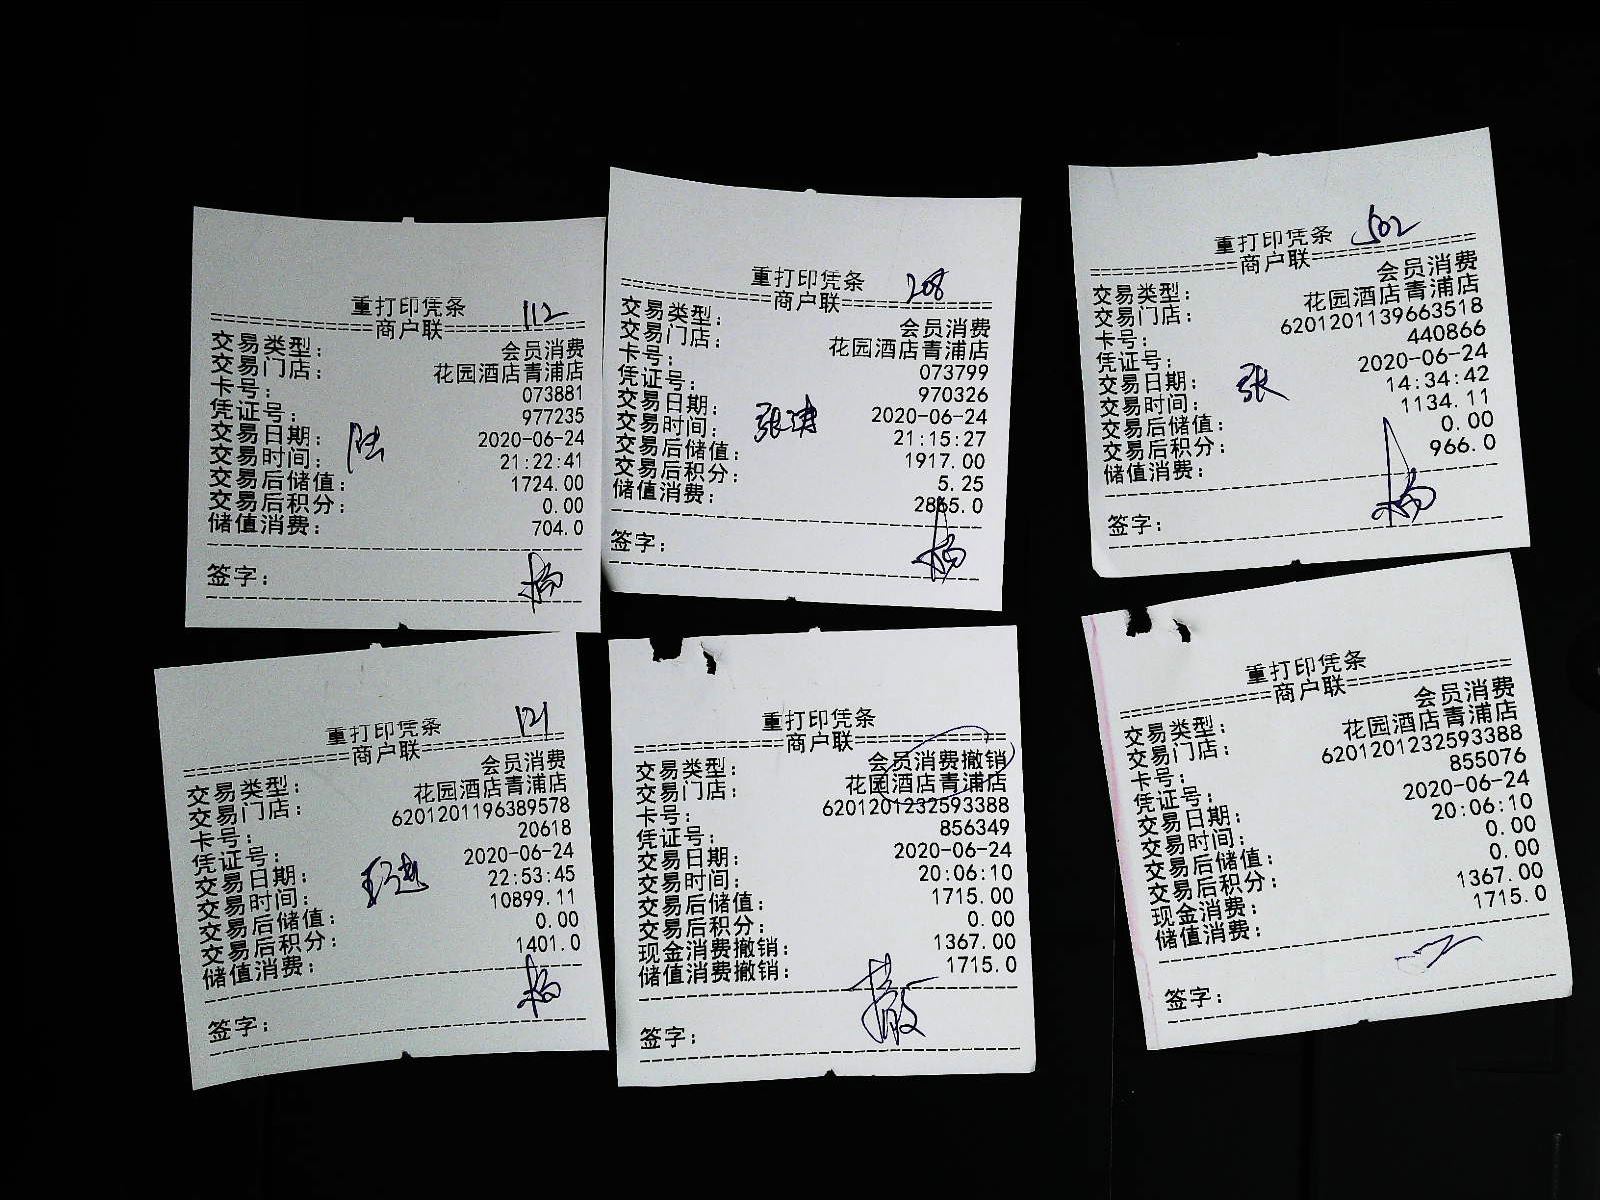 重打印凭条 112
================商户联================
交易类型： 会员消费
交易门店： 花园酒店青浦店
卡号： 073881
凭证号： 977235
交易日期： 2020-06-24
交易时间： 21:22:41
陆
交易后储值： 1724.00
交易后积分： 0.00
储值消费： 704.0
签字： 杨
重打印凭条 208
================商户联================
交易类型： 会员消费
交易门店： 花园酒店青浦店
卡号： 073799
凭证号： 970326
交易日期： 2020-06-24
交易时间： 21:15:27
交易后储值： 1917.00
交易后积分： 5.25
储值消费： 2865.0
签字： 杨
重打印凭条 502
================商户联================
交易类型： 会员消费
交易门店： 花园酒店青浦店
卡号： 6201201139663518
凭证号： 440866
交易日期： 2020-06-24
交易时间： 14:34:42
张
交易后储值： 1134.11
交易后积分： 0.00
储值消费： 966.0
签字： 杨
重打印凭条 121
================商户联================
交易类型： 会员消费
交易门店： 花园酒店青浦店
卡号： 6201201196389578
凭证号： 20618
交易日期： 2020-06-24
交易时间： 22:53:45
交易后储值： 10899.11
交易后积分： 0.00
储值消费： 1401.0
签字： 杨
重打印凭条
================商户联================
交易类型： 会员消费撤销
交易门店： 花园酒店青浦店
卡号： 6201201232593388
凭证号： 856349
交易日期： 2020-06-24
交易时间： 20:06:10
交易后储值： 1715.00
交易后积分： 0.00
现金消费撤销： 1367.00
储值消费撤销： 1715.0
签字： 撤
重打印凭条
================商户联================
交易类型： 会员消费
交易门店： 花园酒店青浦店
卡号： 6201201232593388
凭证号： 855076
交易日期： 2020-06-24
交易时间： 20:06:10
交易后储值： 0.00
交易后积分： 0.00
现金消费： 1367.00
储值消费： 1715.0
签字：